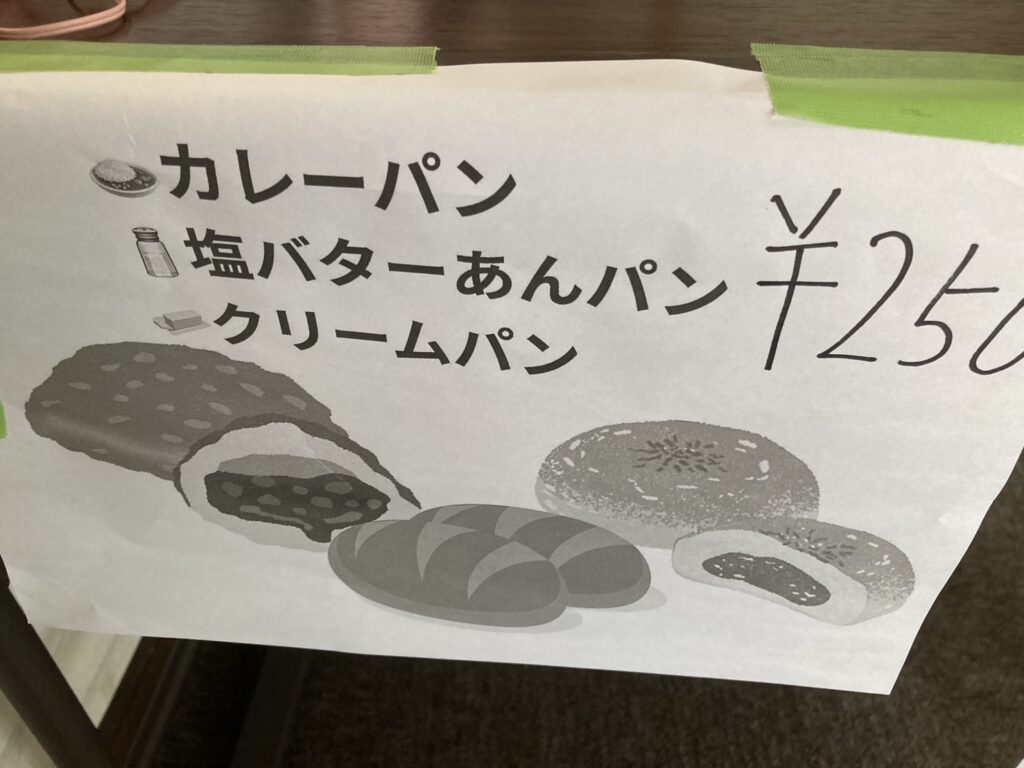 カレーパン
塩バターあんパン ¥250
クリームパン